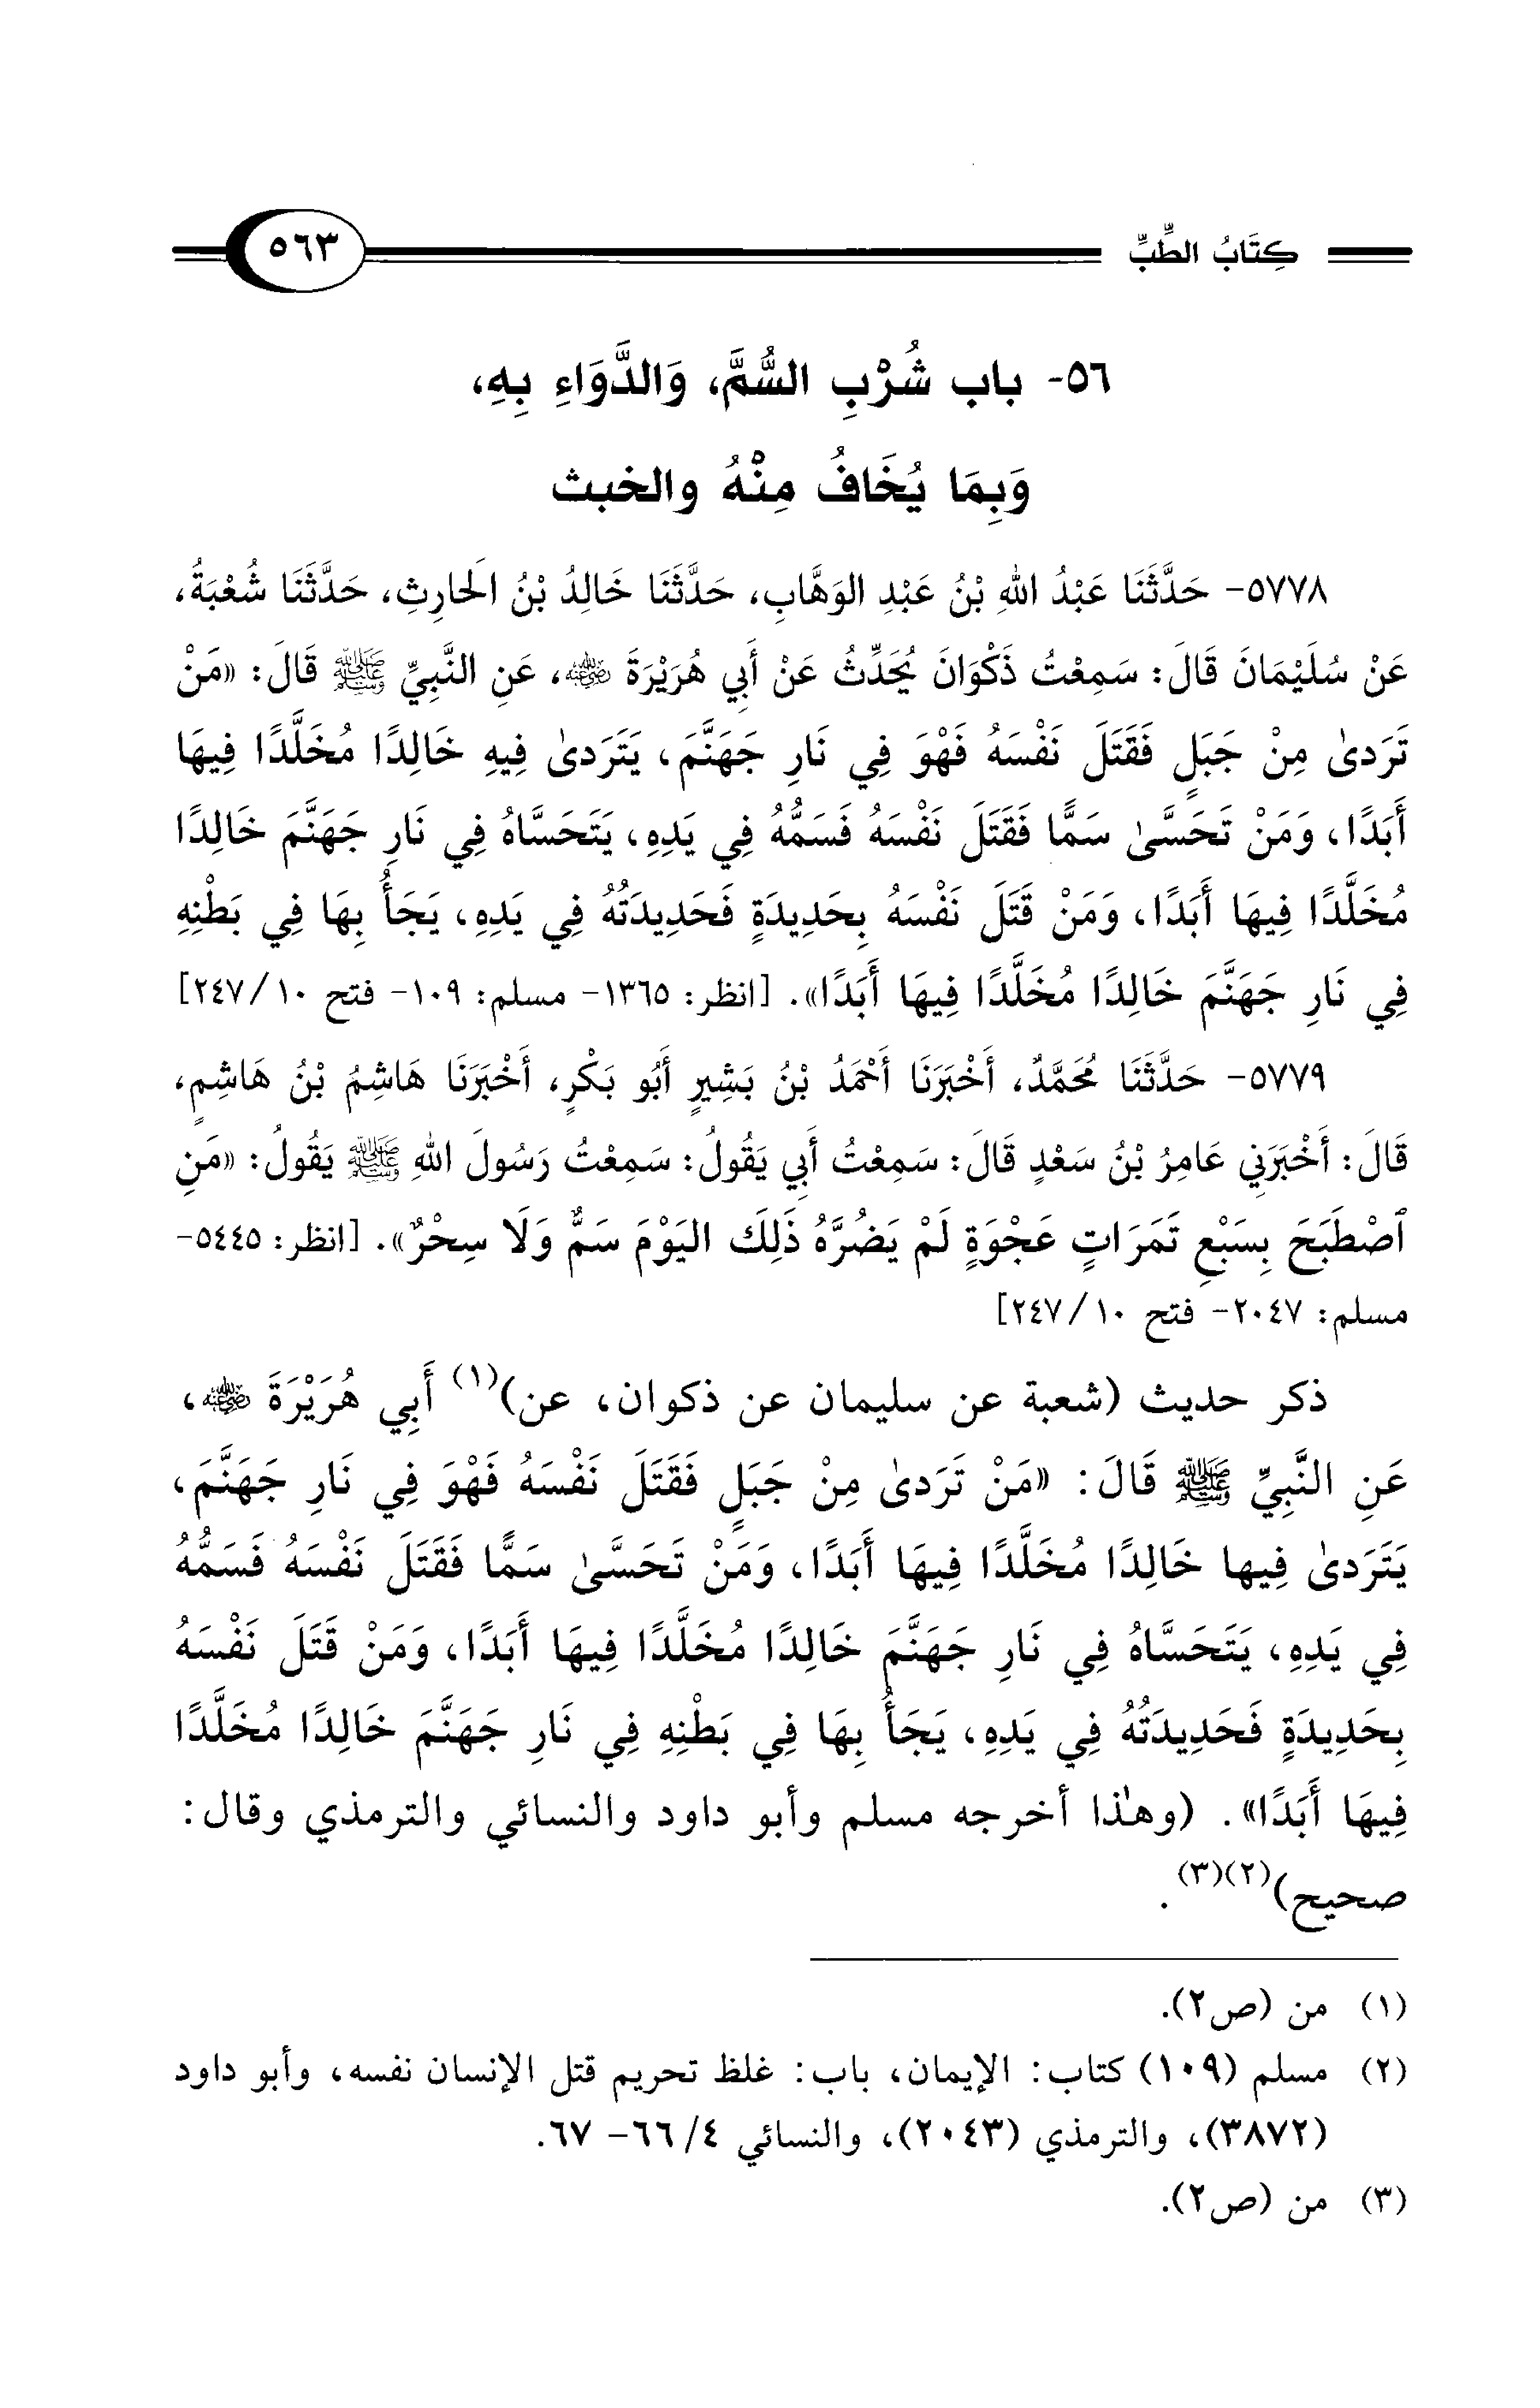 كِتَابُ الطِّبِّ
٥٦٣
٥٦- باب شُرْبِ السُّمَّ، وَالدَّوَاءِ بِهِ،
وَبِمَا يُخَافُ مِنْهُ والخبث
٥٧٧٨- حَدَّثَنَا عَبْدُ اللهِ بْنُ عَبْدِ الوَهَّابِ، حَدَّثَنَا خَالِدُ بْنُ الَحارِثِ، حَدَّثَنَا شُعْبَةُ،
عَنْ سُلَيْمَانَ قَالَ: سَمِعْتُ ذَكْوَانَ يُحَدِّثُ عَنْ أَبِي هُرَيْرَةَ رضي الله عنه، عَنِ النَّبِيِّ ﷺ قَالَ: «مَنْ
تَرَدىٰ مِنْ جَبَلٍ فَقَتَلَ نَفْسَهُ فَهْوَ فِي نَارِ جَهَنَّمَ، يَتَرَدىٰ فِيهِ خَالِدًا مُخَلَّدًا فِيهَا
أَبَدًا، وَمَنْ تَحَسَّىٰ سَمًّا فَقَتَلَ نَفْسَهُ فَسَمُّهُ فِي يَدِهِ، يَتَحَسَّاهُ فِي نَارِ جَهَنَّمَ خَالِدًا
مُخَلَّدًا فِيهَا أَبَدًا، وَمَنْ قَتَلَ نَفْسَهُ بِحَدِيدَةٍ فَحَدِيدَتُهُ فِي يَدِهِ، يَجَأُ بِهَا فِي بَطْنِهِ
فِي نَارِ جَهَنَّمَ خَالِدًا مُخَلَّدًا فِيهَا أَبَدًا». [انظر: ١٣٦٥- مسلم: ١٠٩- فتح ١٠/ ٢٤٧]
٥٧٧٩- حَدَّثَنَا مُحَمَّدٌ، أَخْبَرَنَا أَحْمَدُ بْنُ بَشِيرٍ أَبُو بَكْرٍ، أَخْبَرَنَا هَاشِمُ بْنُ هَاشِمٍ،
قَالَ: أَخْبَرَنِي عَامِرُ بْنُ سَعْدٍ قَالَ: سَمِعْتُ أَبِي يَقُولُ: سَمِعْتُ رَسُولَ اللهِ ﷺ يَقُولُ: «مَنِ
ٱصْطَبَحَ بِسَبْعِ تَمَرَاتٍ عَجْوَةٍ لَمْ يَضُرَّهُ ذَلِكَ اليَوْمَ سَمٌّ وَلَا سِحْرٌ». [انظر: ٥٤٤٥-
مسلم: ٢٠٤٧- فتح ١٠/ ٢٤٧]
ذكر حديث (شعبة عن سليمان عن ذكوان، عن)(١) أَبِي هُرَيْرَةَ رضي الله عنه،
عَنِ النَّبِيِّ ﷺ قَالَ: «مَنْ تَرَدىٰ مِنْ جَبَلٍ فَقَتَلَ نَفْسَهُ فَهْوَ فِي نَارِ جَهَنَّمَ،
يَتَرَدىٰ فِيها خَالِدًا مُخَلَّدًا فِيهَا أَبَدًا، وَمَنْ تَحَسَّىٰ سَمًّا فَقَتَلَ نَفْسَهُ فَسَمُّهُ
فِي يَدِهِ، يَتَحَسَّاهُ فِي نَارِ جَهَنَّمَ خَالِدًا مُخَلَّدًا فِيهَا أَبَدًا، وَمَنْ قَتَلَ نَفْسَهُ
بِحَدِيدَةٍ فَحَدِيدَتُهُ فِي يَدِهِ، يَجَأُ بِهَا فِي بَطْنِهِ فِي نَارِ جَهَنَّمَ خَالِدًا مُخَلَّدًا
فِيهَا أَبَدًا». (وهٰذا أخرجه مسلم وأبو داود والنسائي والترمذي وقال:
صحيح)(٢)(٣).
(١) من (ص٢).
(٢) مسلم (١٠٩) كتاب: الإيمان، باب: غلظ تحريم قتل الإنسان نفسه، وأبو داود
(٣٨٧٢)، والترمذي (٢٠٤٣)، والنسائي ٤/ ٦٦- ٦٧.
(٣) من (ص٢).